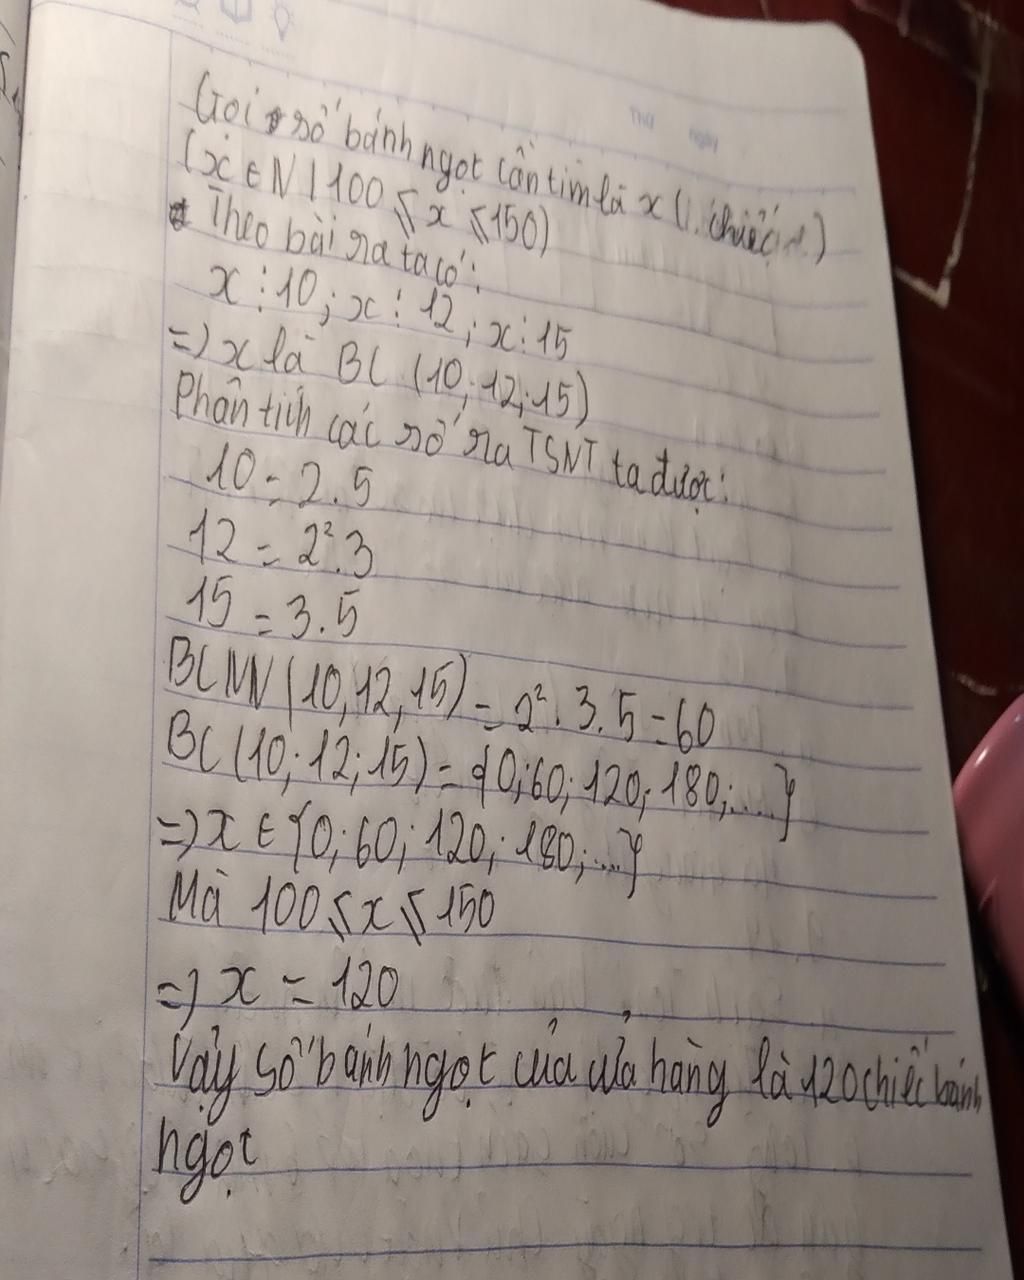 Gọi số bánh ngọt cần tìm là x (chiếc)
(x ∈ N | 100 ≤ x ≤ 150)
Theo bài ra ta có:
x ⋮ 10; x ⋮ 12; x ⋮ 15
=> x là BC (10; 12; 15)
Phân tích các số ra TSNT ta được:
10 = 2.5
12 = 2².3
15 = 3.5
BCNN (10, 12, 15) = 2². 3. 5 = 60
BC (10; 12; 15) = {0; 60; 120; 180; ....}
=> x ∈ {0; 60; 120; 180; ....}
Mà 100 ≤ x ≤ 150
=> x = 120
Vậy số bánh ngọt của cửa hàng là 120 chiếc bánh
ngọt